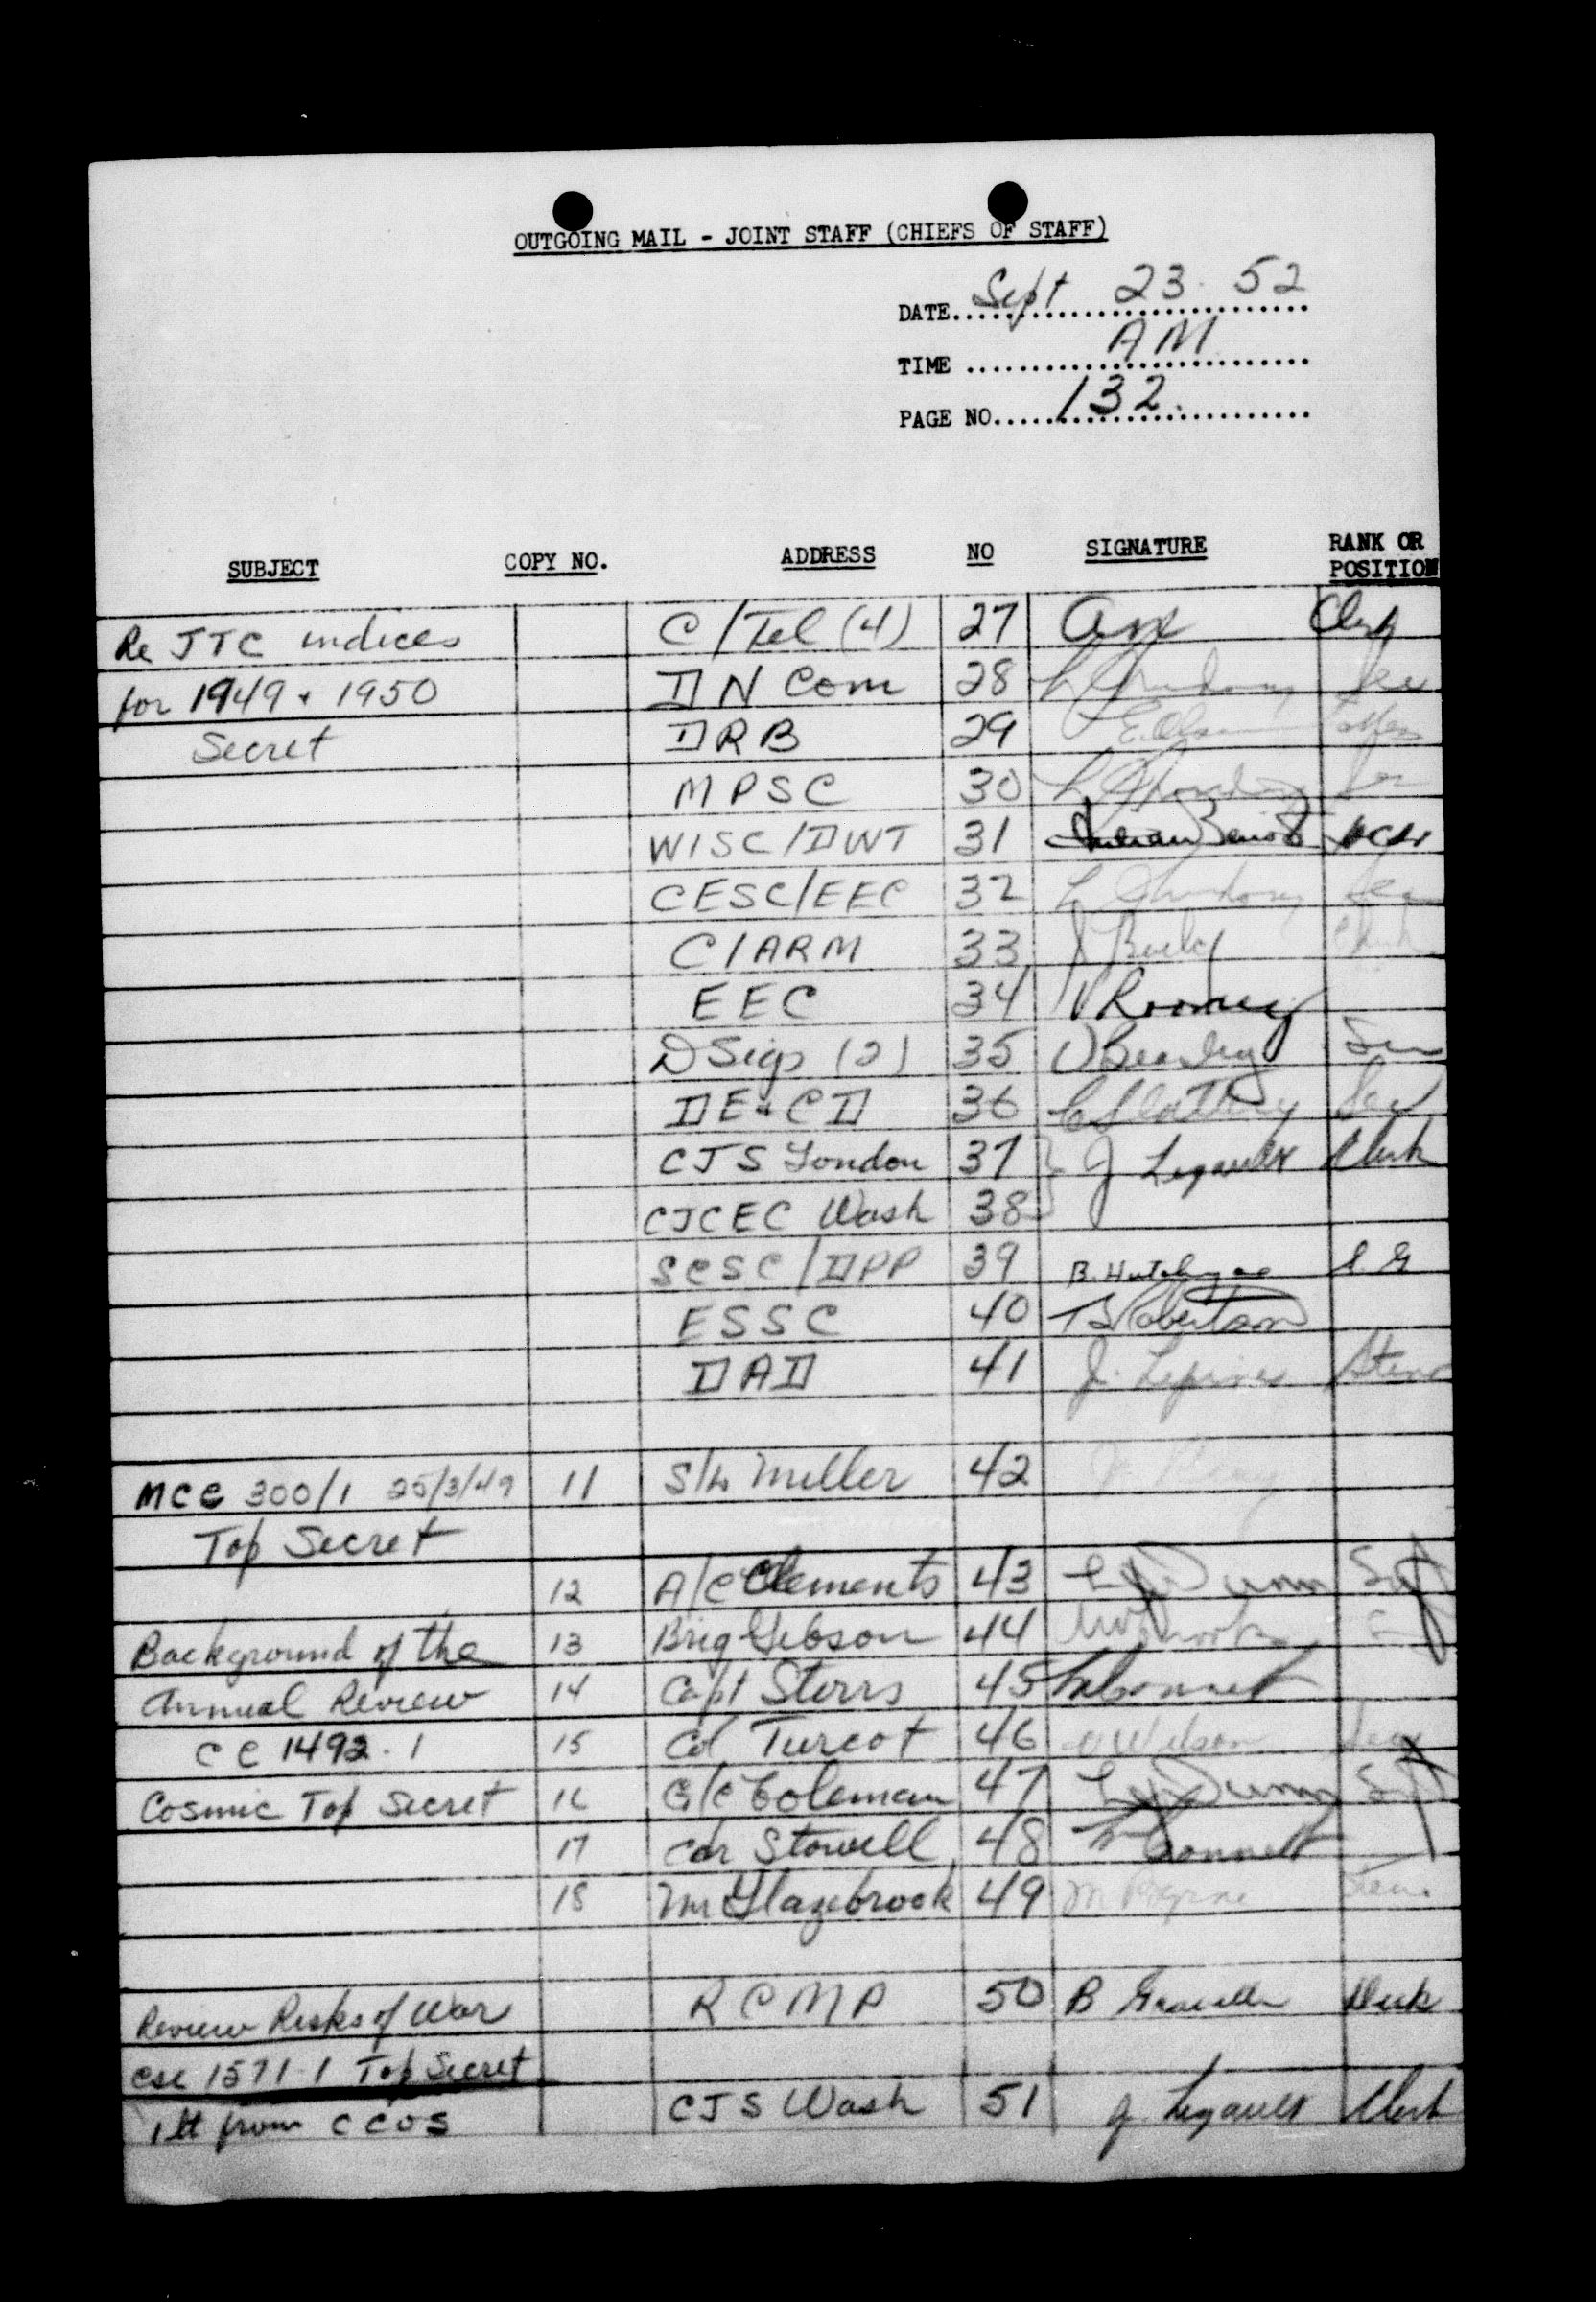 OUTGOING MAIL - JOINT STAFF (CHIEFS OF STAFF)
DATE Sept 23. 52
TIME AM
PAGE NO. 132.
SUBJECT COPY NO. ADDRESS NO SIGNATURE RANK OR POSITION
Re JTC indices C/Tel (4) 27
for 1949 & 1950 DN Com 28
Secret DRB 29 E. Olsen
MPSC 30
WISC/DWT 31
CESC/EEC 32
C/ARM 33
EEC 34 V Rooney
D Sigs (2) 35
DE & CD 36 Slattery
CJS London 37 J Legault Clerk
CJCEC Wash 38
SCSC/DPP 39 B. Hutchings
ESSC 40 Robertson
DAD 41 J. Lepine Steno
MCC 300/1 25/3/49 11 S/L Miller 42
Top Secret
12 A/C Clements 43 Dunn Sgt
Background of the 13 Brig Gibson 44
Annual Review 14 Capt Storrs 45
CC 1492.1 15 Col Turcot 46 Wilson
Cosmic Top Secret 16 G/C Coleman 47 Dunn Sgt
17 Cdr Stowell 48
18 Mr Glazebrook 49
Review Risks of War RCMP 50 B Clerk
CSC 1571-1 Top Secret
1 lt from CCOS CJS Wash 51 J. Legault Clerk